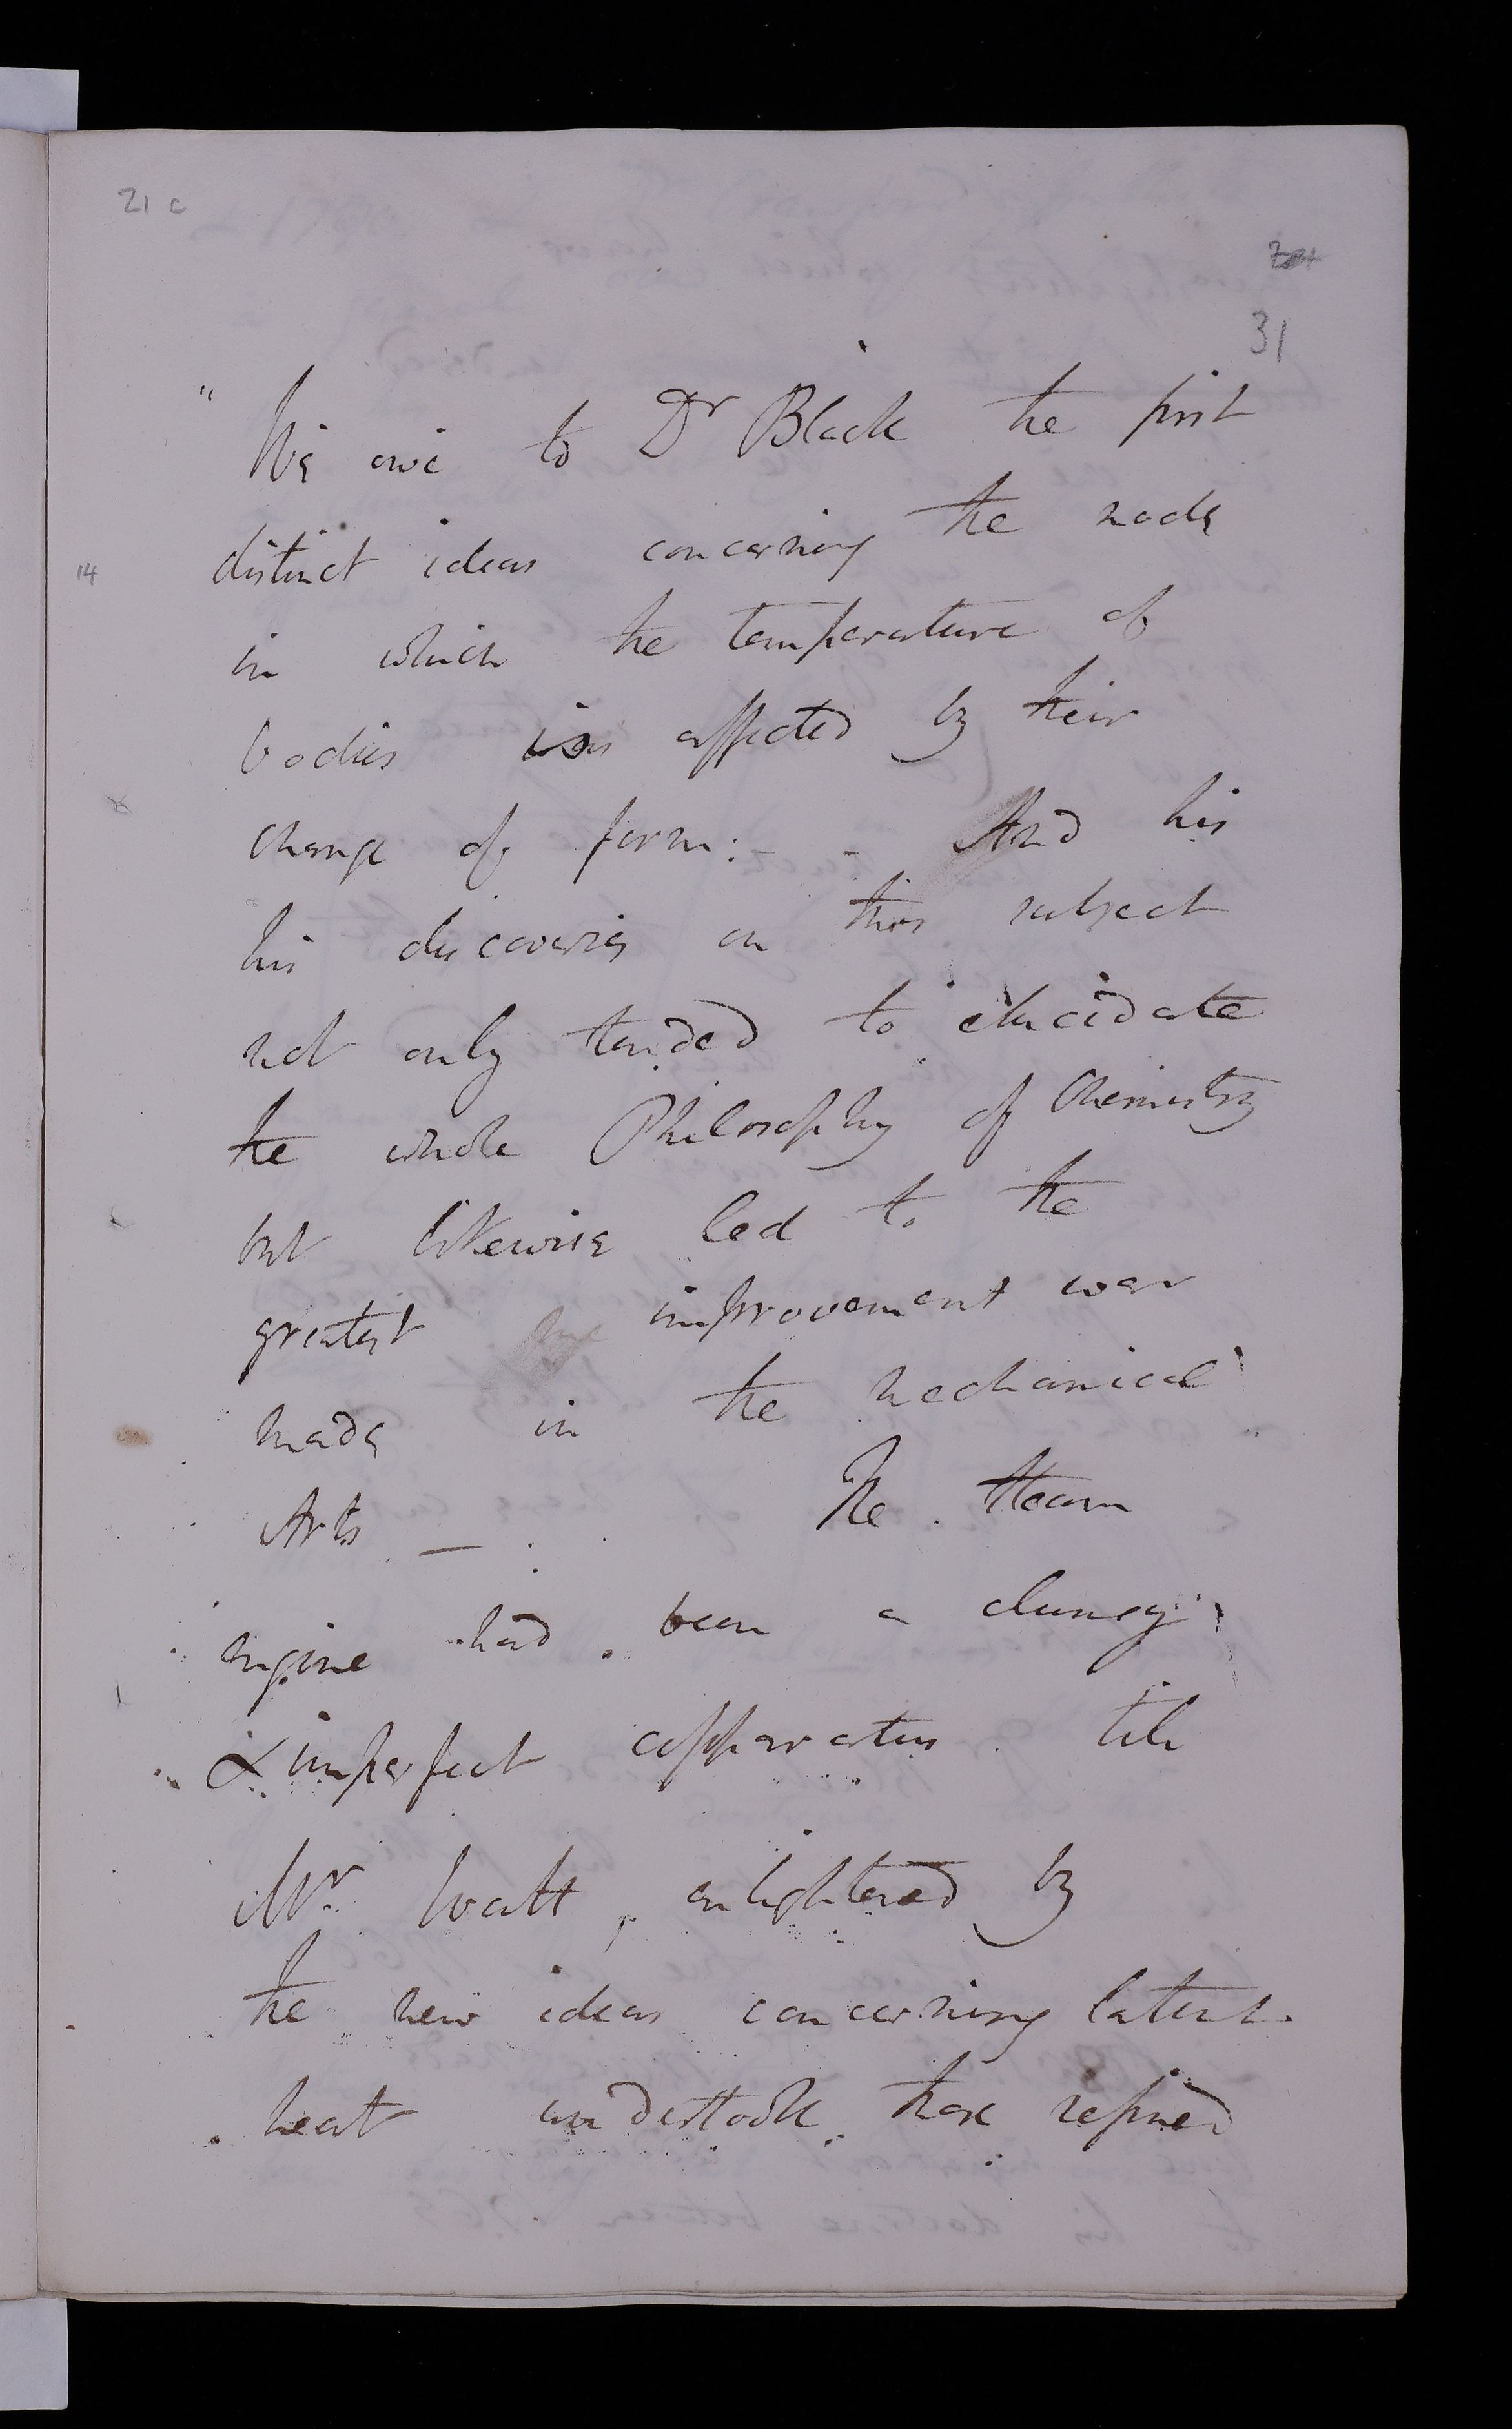 21 c
31
" We owe to Dr Black the first
distinct ideas concerning the mode
14
in which the temperature of
bodies is affected by their
change of form:- - And his
his discoveries on this subject
not only tended to elucidate
the whole Philosophy of Chemistry
but likewise led to the
greatest improvement ever
made in the mechanical
Arts _ The steam
engine had been a clumsy
& imperfect apparatus till
Mr Watt, enlightened by
the new ideas concerning latent
heat understook those refined